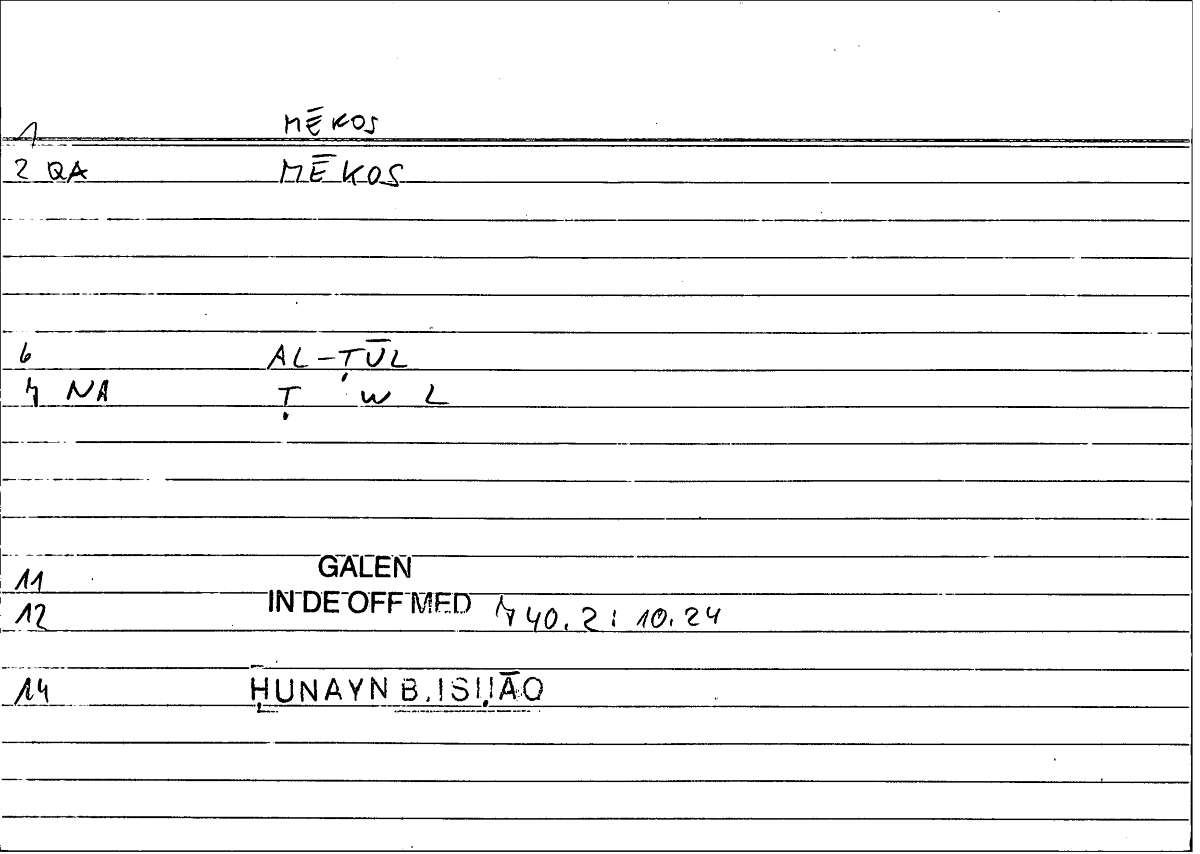 1 MĒKOS
2 QA MĒKOS
6 AL-ṬŪL
7 NA Ṭ W L
11 GALEN
12 IN DE OFF MED 740.2 : 10.24
14 ḤUNAYN B. ISḤĀQ